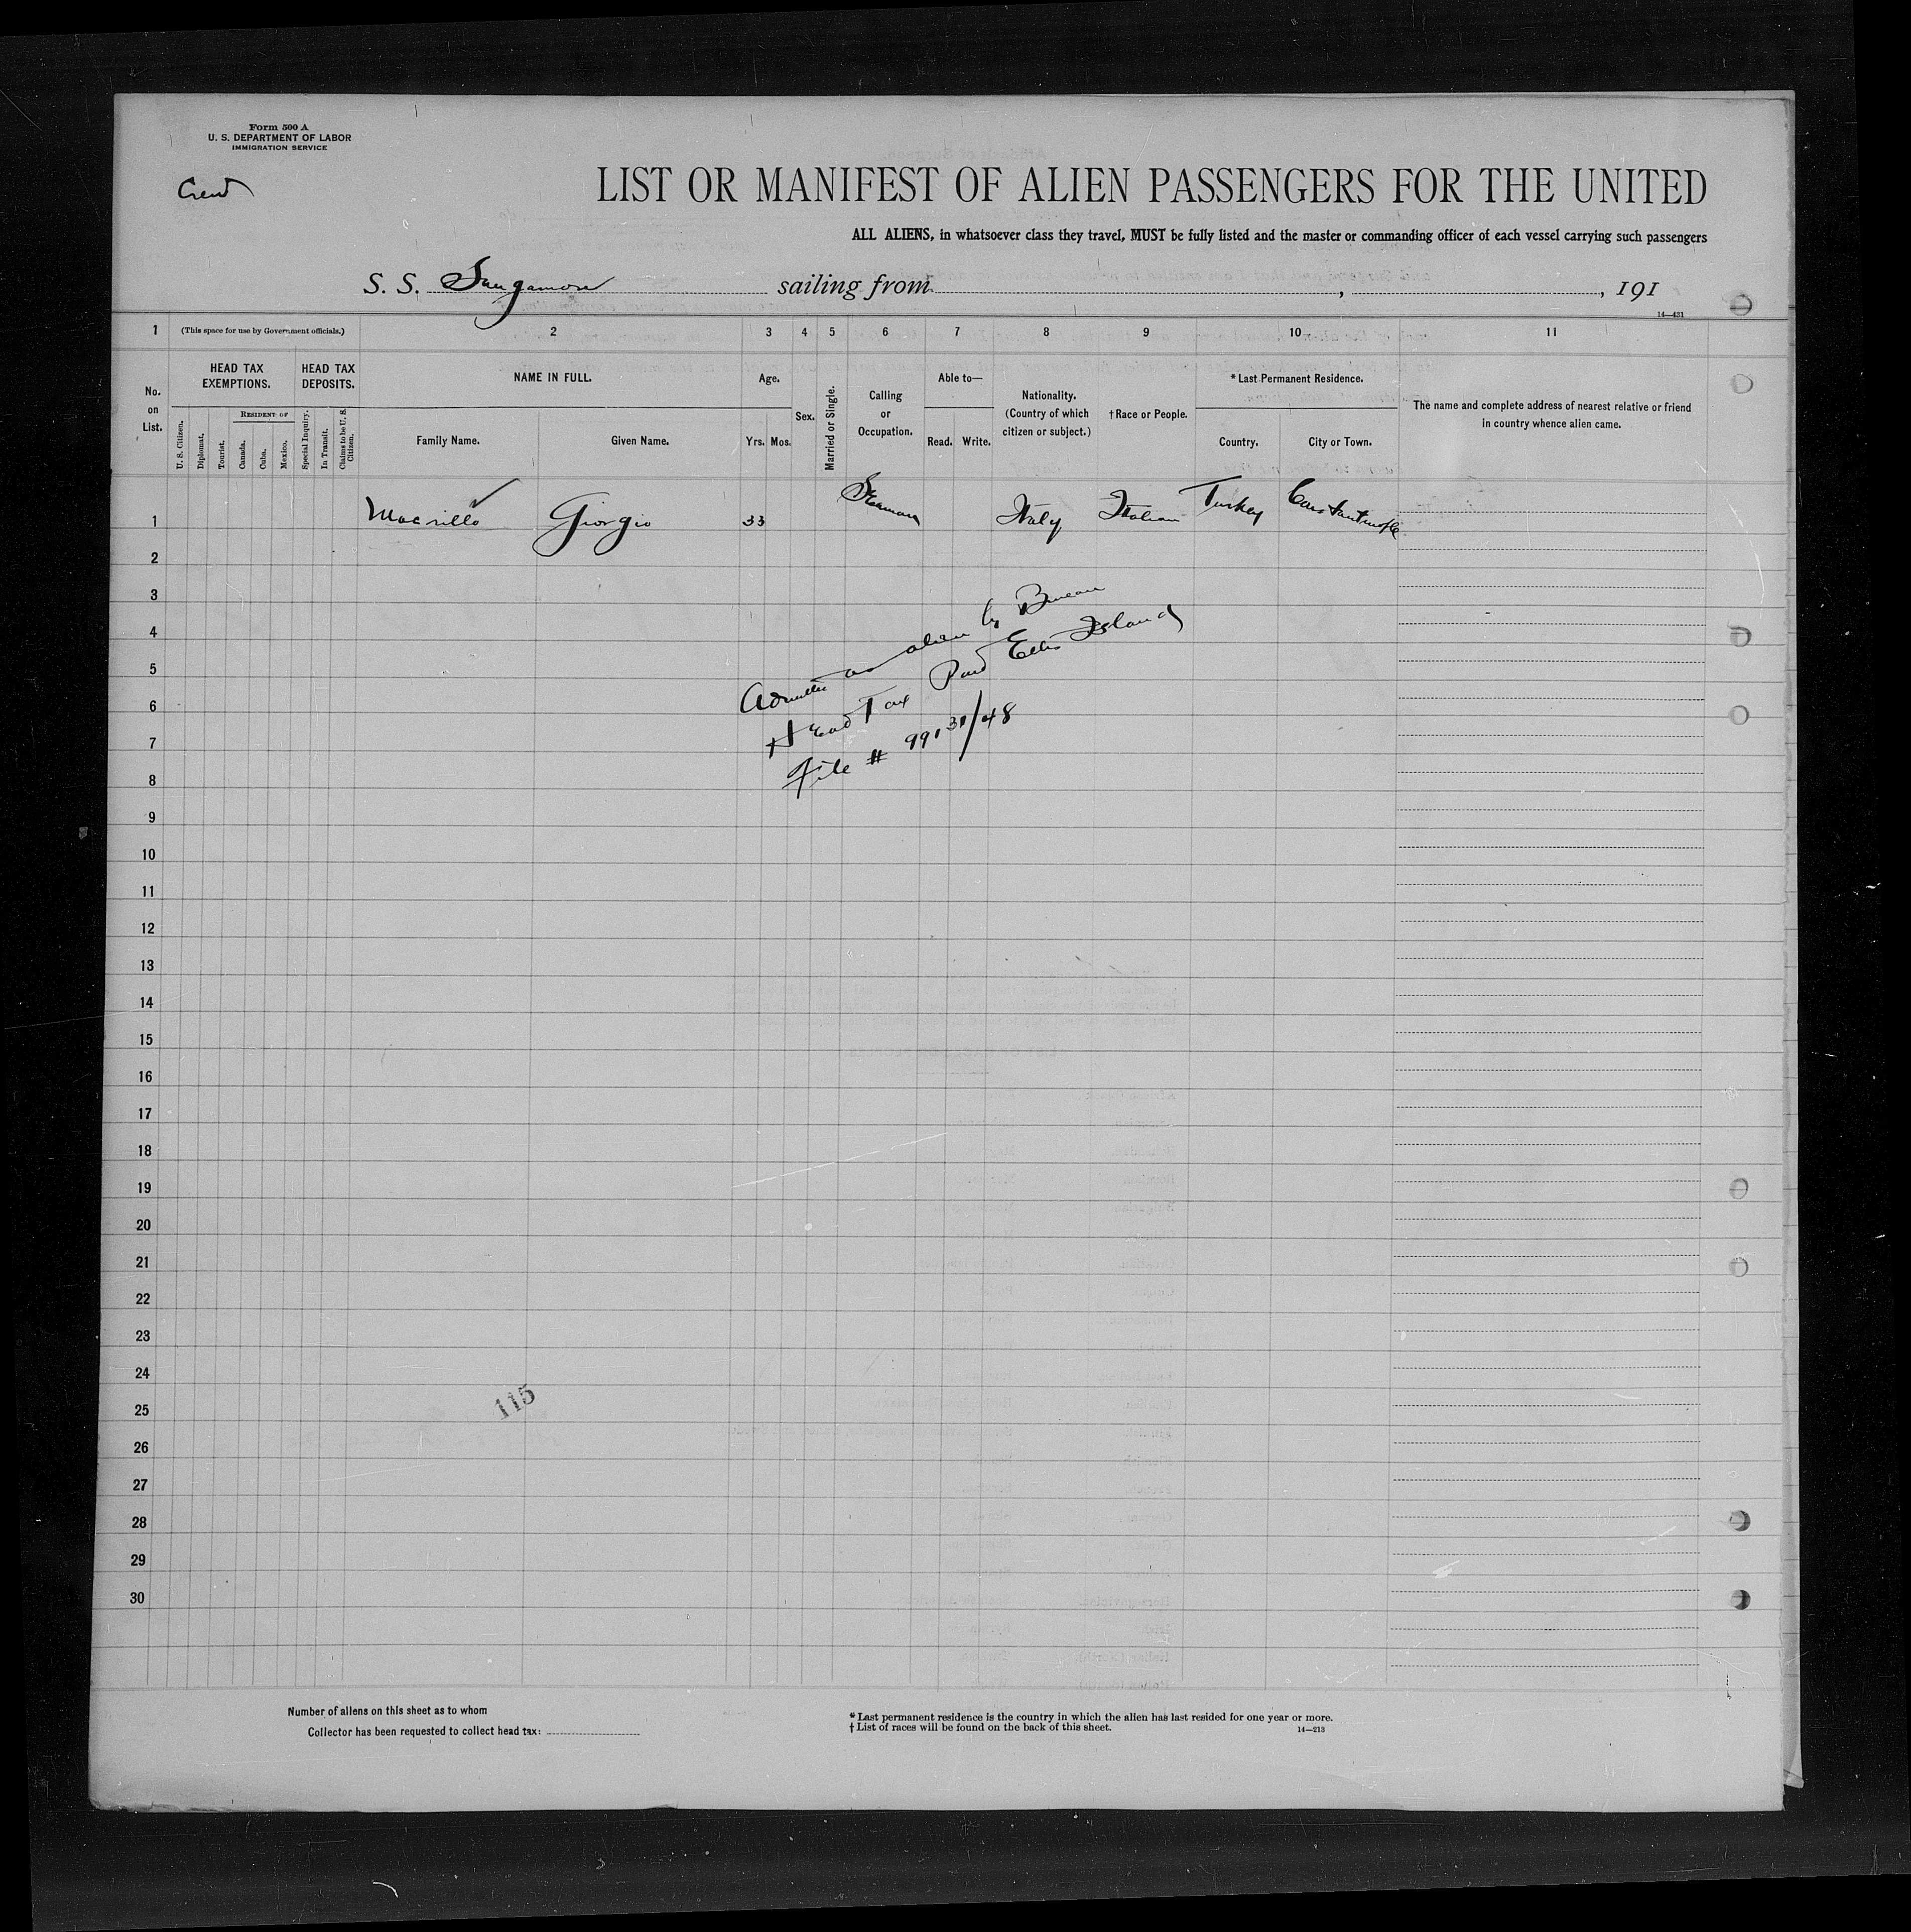 Form 500 A
U. S. DEPARTMENT OF LABOR
IMMIGRATION SERVICE
Crew
LIST OR MANIFEST OF ALIEN PASSENGERS FOR THE UNITED
ALL ALIENS, in whatsoever class they travel, MUST be fully listed and the master or commanding officer of each vessel carrying such passengers
S. S. Sangamon sailing from , , 191
14—431
1 (This space for use by Government officials.) 2 3 4 5 6 7 8 9 10 11
No. on List.
HEAD TAX EXEMPTIONS.
U. S. Citizen.
Diplomat.
Tourist.
RESIDENT OF
Canada.
Cuba.
Mexico.
HEAD TAX DEPOSITS.
Special Inquiry.
In Transit.
Claims to be U. S. Citizen.
NAME IN FULL.
Family Name.
Given Name.
Age.
Yrs. Mos.
Sex.
Married or Single.
Calling or Occupation.
Able to—
Read. Write.
Nationality. (Country of which citizen or subject.)
†Race or People.
*Last Permanent Residence.
Country.
City or Town.
The name and complete address of nearest relative or friend
in country whence alien came.
1 Macrillo Giorgio 33 Seaman Italy Italian Turkey Constantinople
2
3
4
5
6
7
8
9
10
11
12
13
14
15
16
17
18
19
20
21
22
23
24
25
26
27
28
29
30
Admitted as alien by Bureau
Head Tax Paid Ellis Island
File # 99131/48
115
Number of aliens on this sheet as to whom
Collector has been requested to collect head tax:
* Last permanent residence is the country in which the alien has last resided for one year or more.
† List of races will be found on the back of this sheet.
14—213